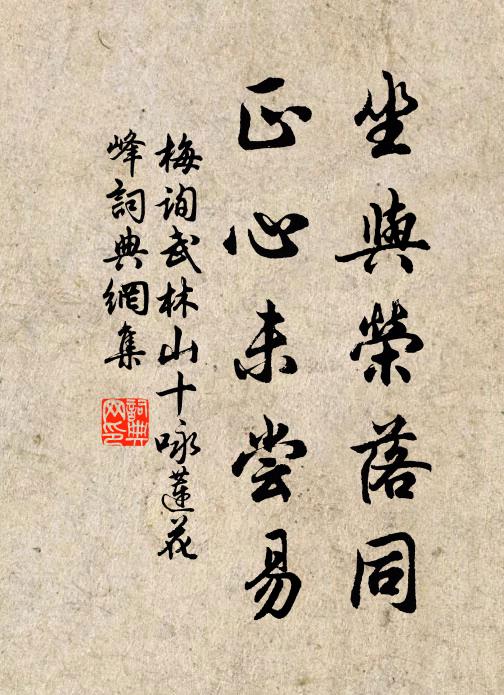 坐與榮落同
正心未尝易
梅询武林山十咏蓮花
峰詞典網集
詞典网印